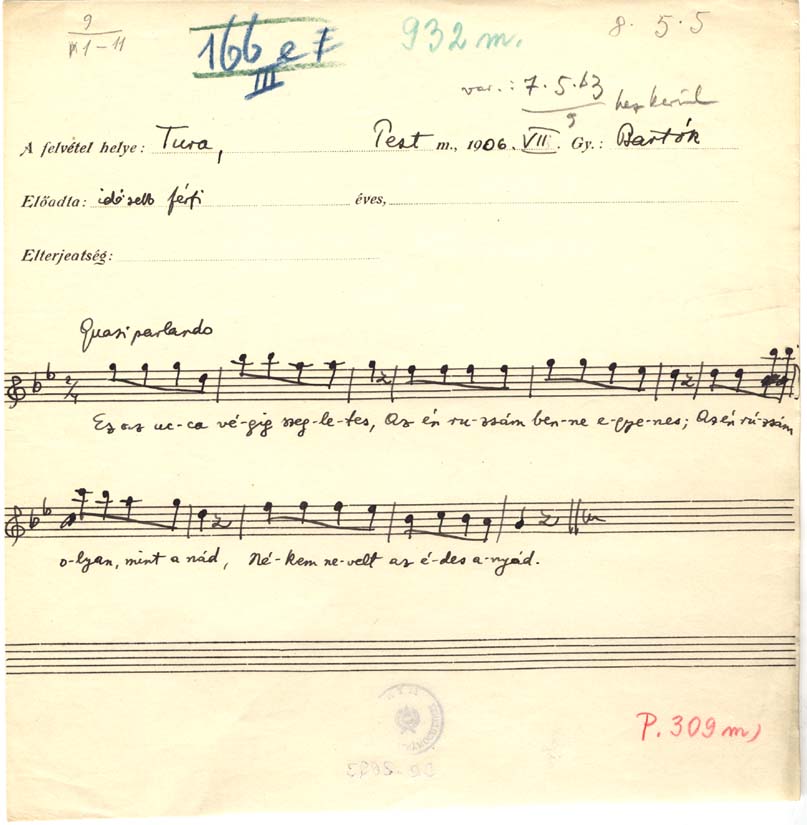 9
1-11
166 e 7
III
932 m.
8. 5. 5
var.: 7.5.b3
9
A felvétel helye: Tura, Pest m., 1906. VII. Gy.: Bartók
Előadta: idősebb férfi éves,
Elterjeatség:
Quasi parlando
2/4
Ez az uc-ca vé-gig szeg-le-tes, Az én ru-zsám ben-ne e-gye-nes; Az én rú-zsám
o-lyan, mint a nád, Né-kem ne-velt az é-des a-nyád.
P. 309 m)